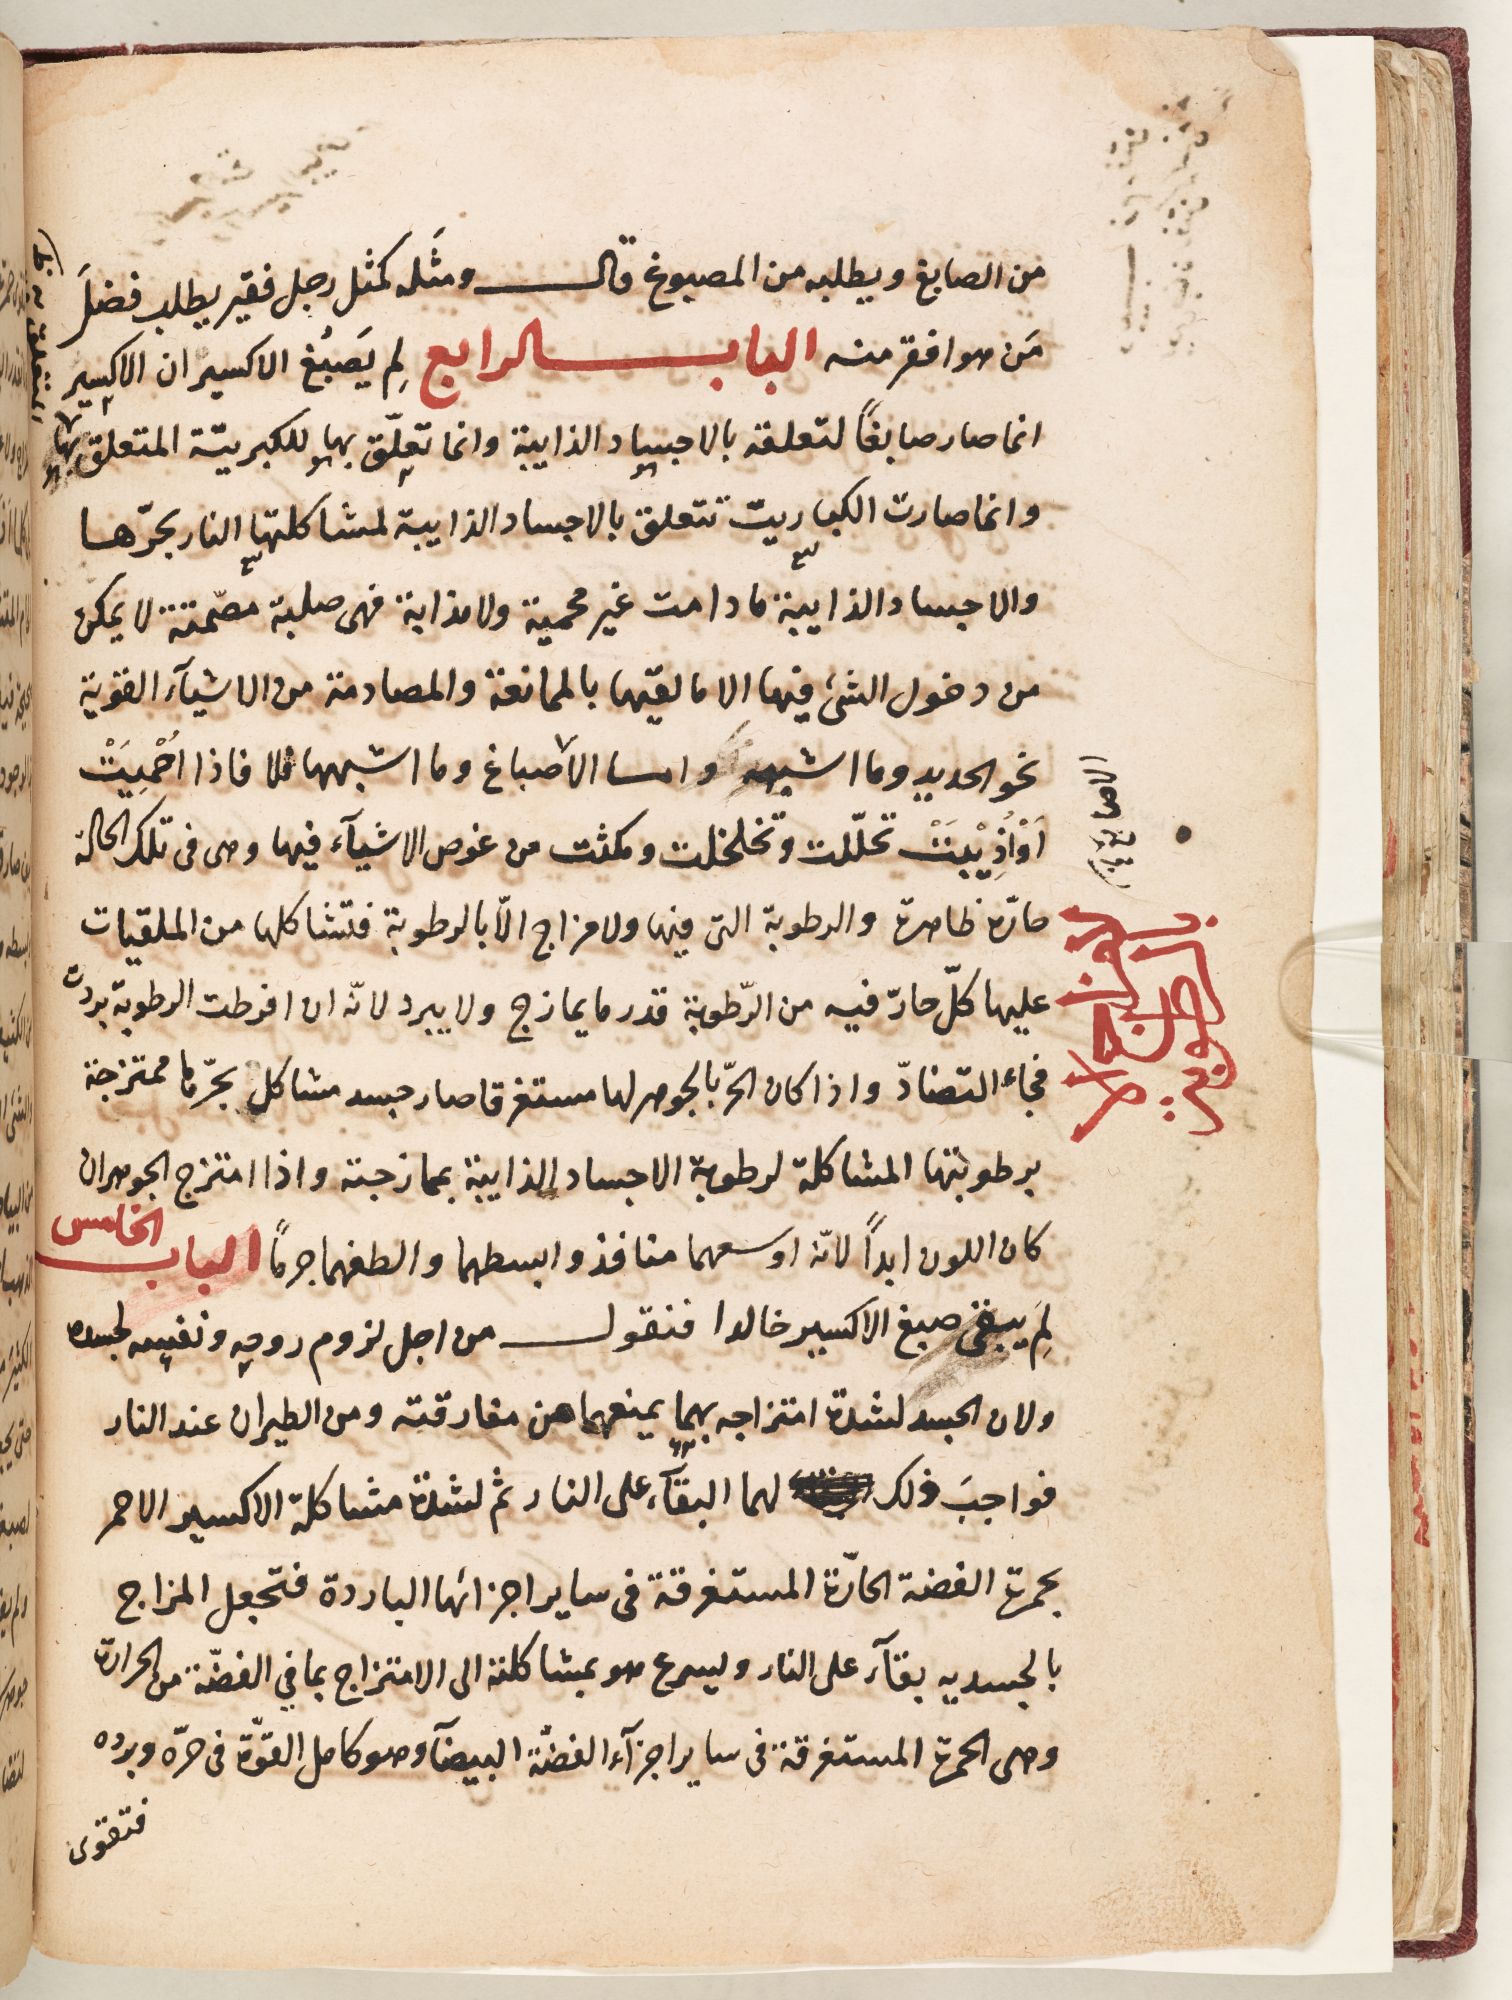 من الصابغ ويطلبه من المصبوغ قال ومثَله كمثل رجل فقير يطلب فضلَ
مَن هو افقر منه الباب الرابع لِم يَصبُغ الاكسير ان الاكسير
انما صار صابغاً لتعلقه بالاجساد الذايبة وانما تعلّق بها للكبريتّة المتعلق بها
وانما صارت الكباريت تتعلق بالاجساد الذايبة لمشاكلتها النار بحرّها
والاجساد الذايبة مادامت غير محمية ولا مذابة فهى صلبة مصّمتة لا يمكن
من دخول الشئ فيها الا ما لقيها بالممانعة والمصادمة من الاشيآء القوية
نحو الحديد وما اشبهه واما الاصباغ وما اشبهها فلا فاذا احْمِيَتْ
اَوْ اُذِيْبَتْ تحلّلت وتخلخلت ومكنت من غوص الاشيآء فيها وهى فى تلك الحالة
حارّة ظاهرة والرطوبة التى فيها ولا مزاج الّا بالرطوبة فتشاكلها من الملقيات
عليها كلّ حارّ فيه من الرّطوبة قدر ما يمازج ولا يبرد لانّه ان افرطت الرطوبة بردت
فجاء التضادّ واذا كان الحرّ بالجوهر لها مستغرقا صار جسد مشاكل بحرّها ممتزجة
برطوبتها المشاكلة لرطوبة الاجساد الذايبة بممازجته واذا امتزج الجوهران
كان اللون ابداً لانّه اوسعهما منافذ وابسطهما والطفهما جرماً الباب الخامس
لِمَ يبقى صبغ الاكسير خالدا فنقول من اجل لزوم روحه ونفسه لجسده
ولان الجسد لشدة امتزاجه بهما يمنعهما من مفارقته ومن الطيران عند النار
فواجبَ ذلك لهما البقآء على النار ثم لشدة مشاكلة الاكسير الاحمر
بحمرة الفضة الحارّة المستغرقة فى ساير اجزائها الباردة فتجعل المزاج
بالجسديه بقآء على النار ويسرع هو بمشاكلته الى الامتزاج بما في الفضّة من الحرارة
وهى الحمرة المستغرقة فى ساير اجزآء الفضّة البيضآء وهو كامل القوّة فى حرّه وبرده
فتقوى